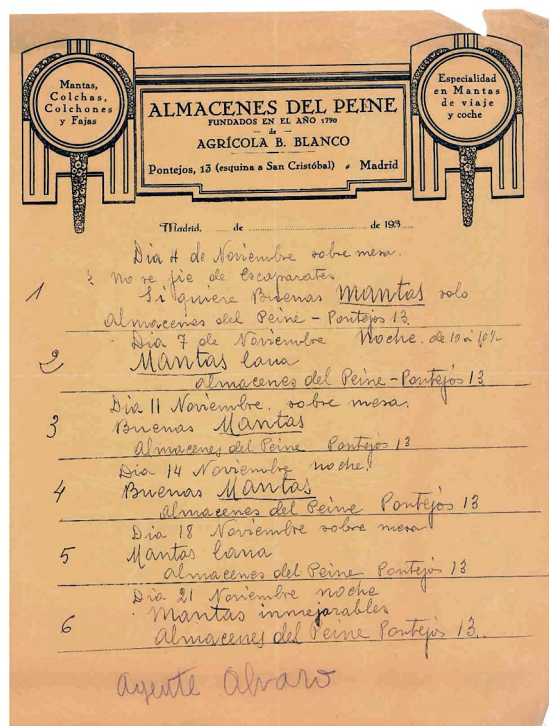 Mantas,
Colchas,
Colchones
y Fajas
ALMACENES DEL PEINE
FUNDADOS EN EL AÑO 1790
— de —
AGRÍCOLA B. BLANCO
Pontejos, 13 (esquina a San Cristóbal) - Madrid
Especialidad
en Mantas
de viaje
y coche
Madrid, de de 193
Dia 4 de Noviembre sobre mesa.
No se fie de Escaparates
1 Si quiere Buenas Mantas solo
Almacenes del Peine - Pontejos 13.
Dia 7 de Noviembre Noche. de 10 á 10½
2 Mantas lana
Almacenes del Peine - Pontejos 13
Dia 11 Noviembre. sobre mesa.
3 Buenas Mantas
Almacenes del Peine Pontejos 13
Dia 14 Noviembre noche.
4 Buenas Mantas
Almacenes del Peine Pontejos 13
Dia 18 Noviembre sobre mesa
5 Mantas lana
Almacenes del Peine Pontejos 13
Dia 21 Noviembre noche
6 Mantas inmejorables
Almacenes del Peine Pontejos 13.
Agente Alvaro